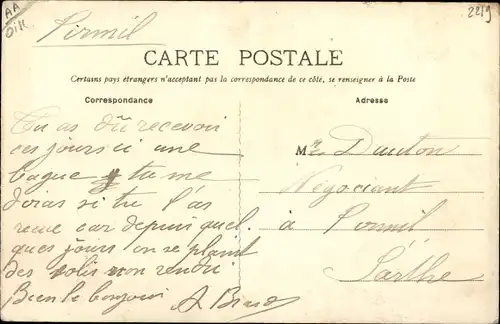 AA
Oise
2219
Pirmil
CARTE POSTALE
Certains pays étrangers n'acceptant pas la correspondance de ce côté, se renseigner à la Poste
Correspondance
Adresse
Tu as dû recevoir
ces jours ci une
bague tu me
diras si tu l'as
reçue car depuis quel
ques jours on se plaint
des colis non rendu
Bien le bonjour A
Mr Dutton
Négociant
à Pirmil
Sarthe